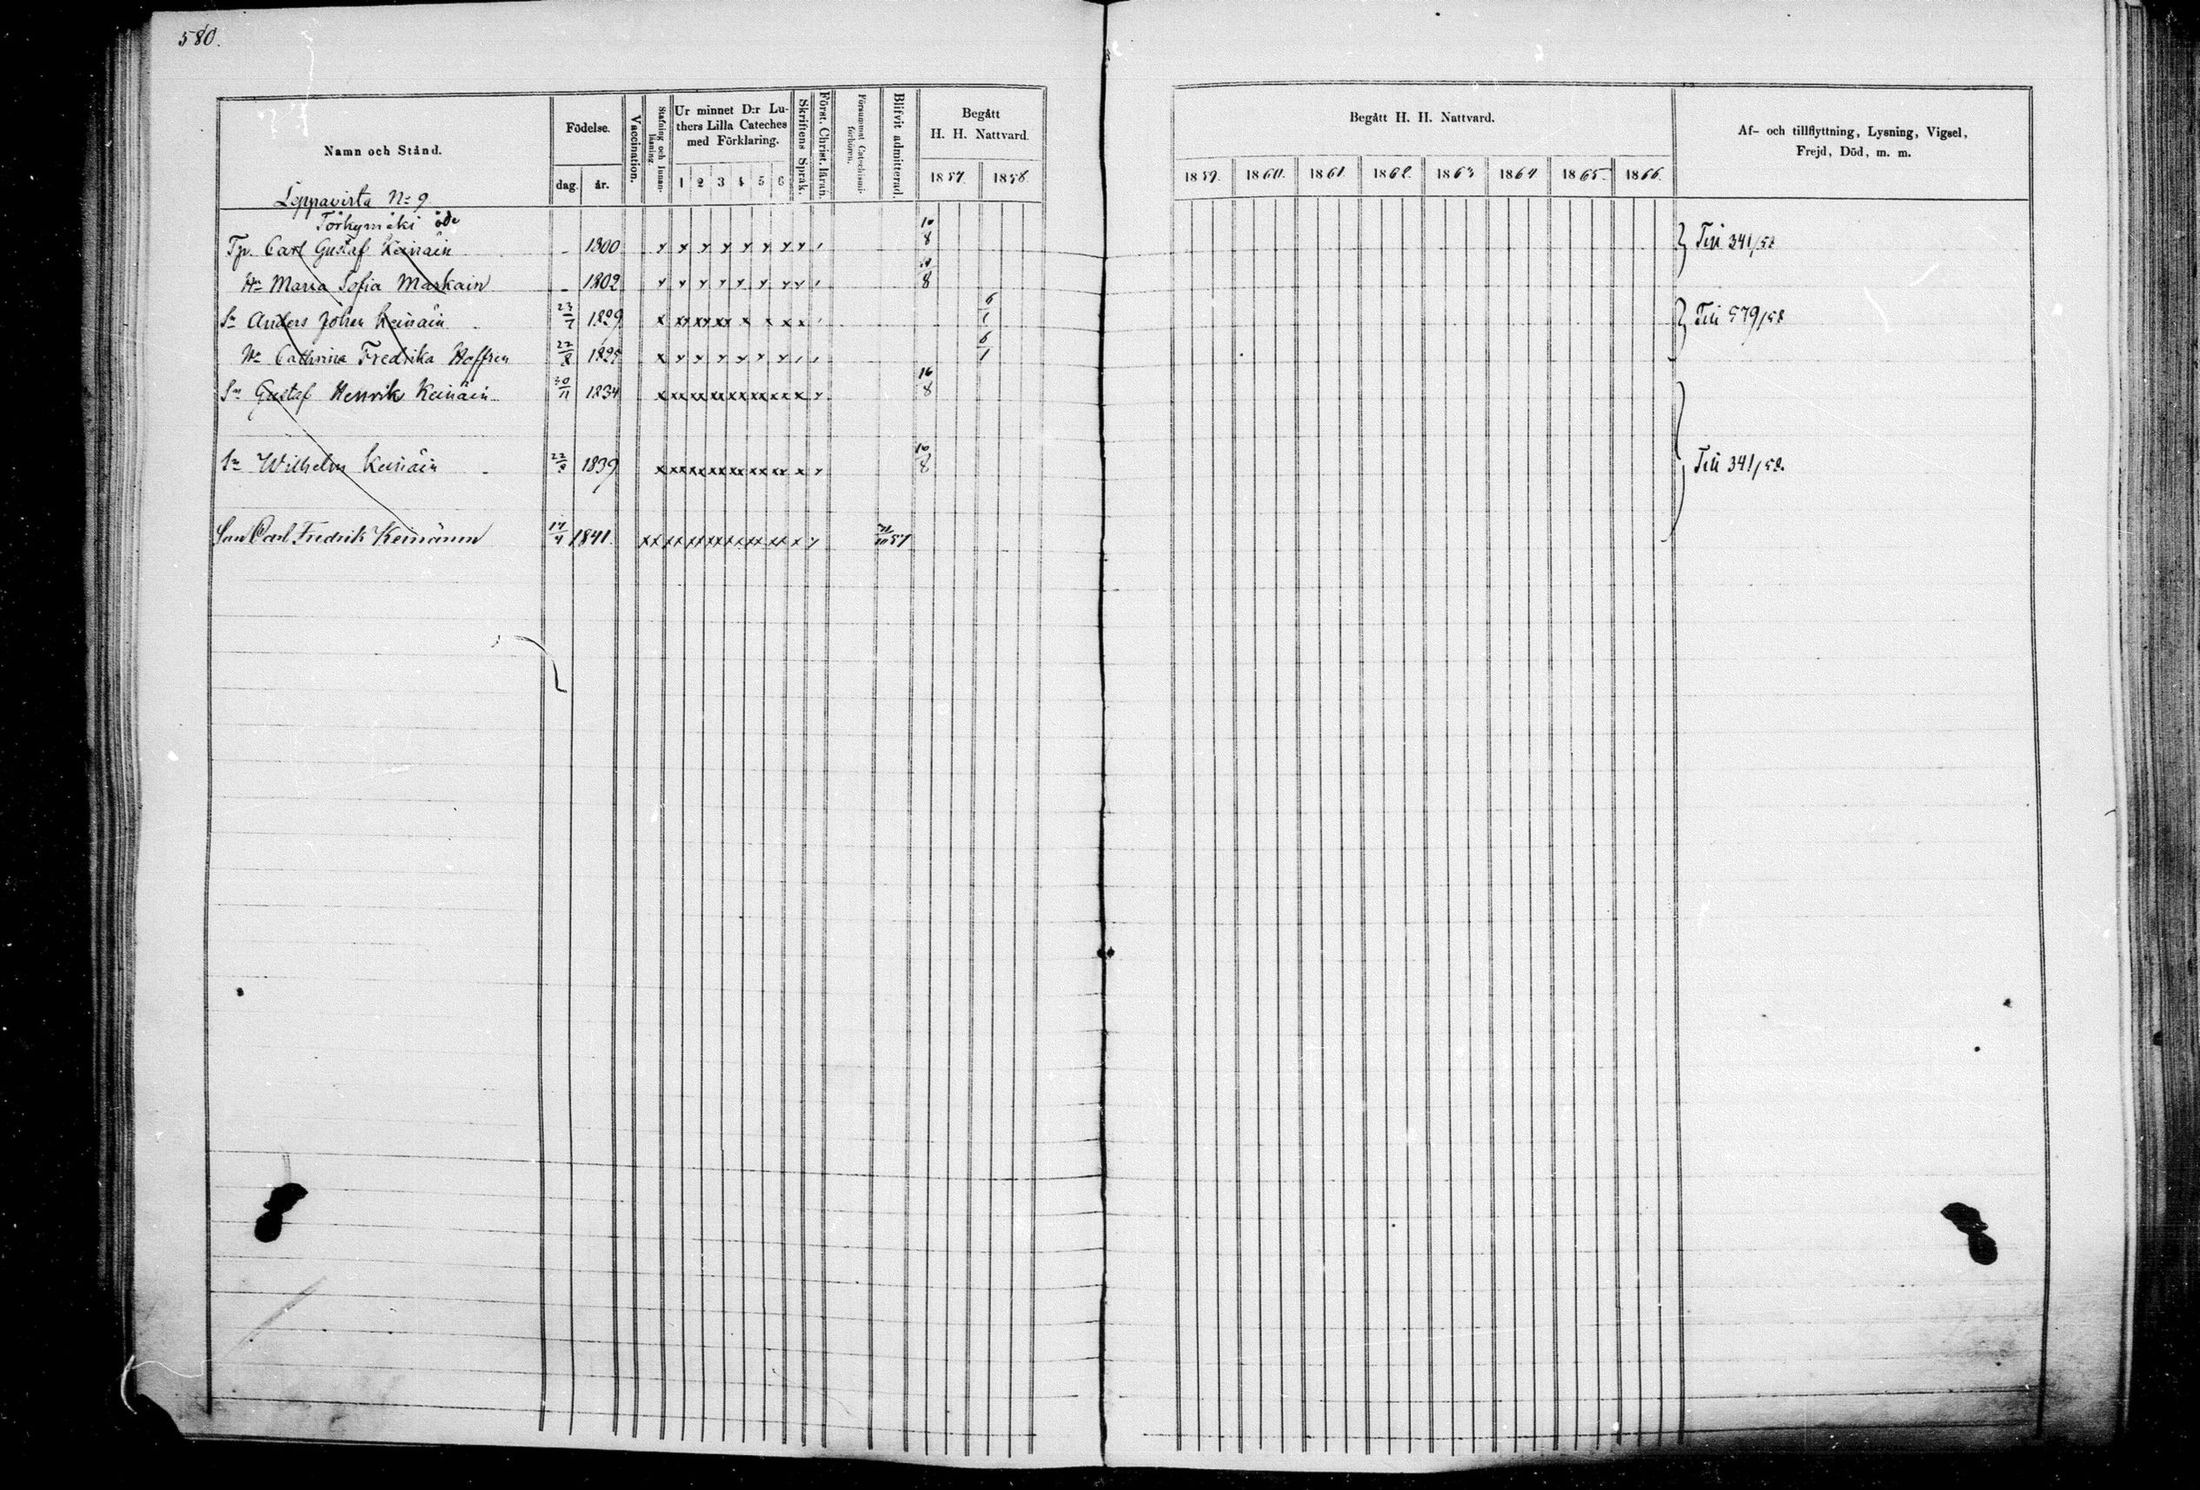 580.
Namn och Stånd. Födelse. dag. år. Vaccination. Stafning och Innanläsning. Ur minnet D:r Luthers Lilla Cateches med Förklaring. 1 2 3 4 5 6 Skriftens Språk. Först. Christ. läran. Försummat Catechismiförhören. Blifvit admitterad. Begått H. H. Nattvard. 1857. 1858.
Begått H. H. Nattvard. 1859. 1860. 1861. 1862. 1863 1864 1865. 1866. Af- och tillflyttning, Lysning, Vigsel, Frejd, Död, m. m.
Leppavirta No 9
Törkymäki öde
Tp. Carl Gustaf Keinäin - 1800 x x x x x x x x 10/8 Till 341/58
Hu Maria Sofia Markain - 1802 x x x x x x x x 10/8
Sn Anders Johan Keinäin 23/7 1829 x xx xx xx x x x x 6/1 Till 579/58
Hu Cathrina Fredrika Hoffren 22/8 1825 x x x x x x x 6/1
Sn Gustaf Henrik Keinäin 30/11 1834 x xx xx xx xx xx xx x x 16/8
Sn Wilhelm Keinäin 22/8 1839 x xx xx xx xx xx xx x x 10/8 Till 341/58.
Son Carl Fredrik Keinänen 17/4 1841. xx xx xx xx xx xx xx x x 57